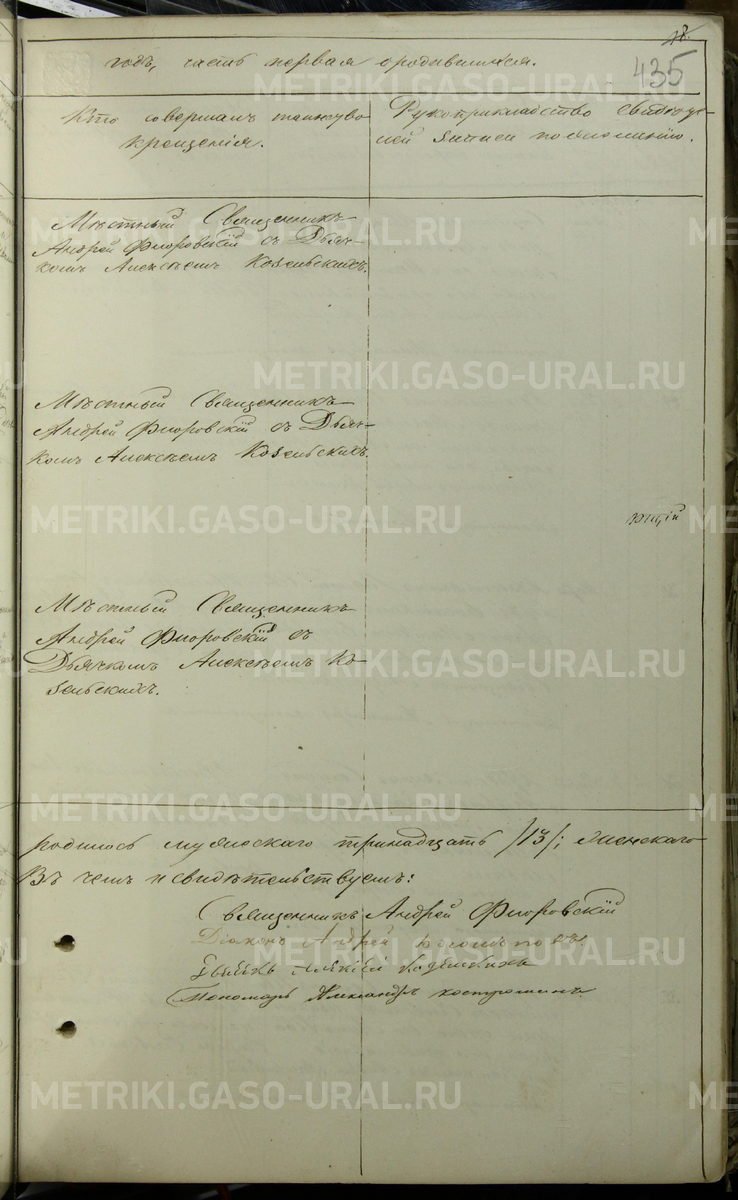 48.
435
годъ, часть первая о родившихся.
Кто совершалъ таинство
крещенія.
Рукоприкладство свидѣте-
лей записи по желанію.
Мѣстный Священникъ
Андрей Флоровскій съ Дьяч-
комъ Алексѣемъ Козельскихъ.
Мѣстный Священникъ
Андрей Флоровскій съ Дьяч-
комъ Алексѣемъ Козельскихъ.
ющій
Мѣстный Священникъ
Андрей Флоровскій съ
Дьячкомъ Алексѣемъ Ко-
зельскихъ.
родилось мужескаго тринадцать /13/; женскаго
Въ чемъ и свидѣтельствуемъ:
Священникъ Андрей Флоровскій
Діаконъ Андрей
Дьячекъ Алексѣй Козельскихъ
Пономарь Александръ Костроминъ.
METRIKI.GASO-URAL.RU